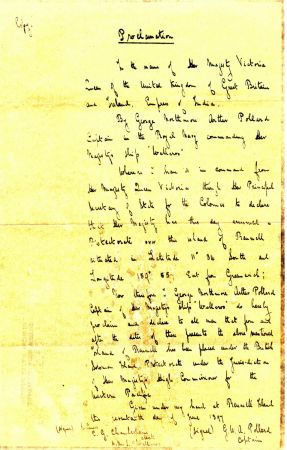 Copy.
Proclamation
In the name of Her Majesty Victoria
Queen of the United Kingdom of Great Britain
and Ireland, Empress of India.
By George Northmore Arthur Pollard
Captain in the Royal Navy commanding Her
Majesty's Ship "Wallaroo".
Whereas I have it in command from
Her Majesty Queen Victoria through Her Principal
Secretary of State for the Colonies to declare
that Her Majesty has this day assumed a
Protectorate over the island of Rennell
situated in Latitude 11° 34 South and
Longitude East from Greenwich;
Now therefore I George Northmore Arthur Pollard
Captain of Her Majesty's Ship "Wallaroo" do hereby
proclaim and declare to all men that from and
after the date of these presents the above mentioned
island of Rennell has been placed under the British
Solomon Island Protectorate under the Jurisdiction
of Her Majesty's High Commissioner for the
Western Pacific.
Given under my hand at Rennell Island
this day of June 1897
(signed) G N A Pollard
C. G. Chamberlain Captain